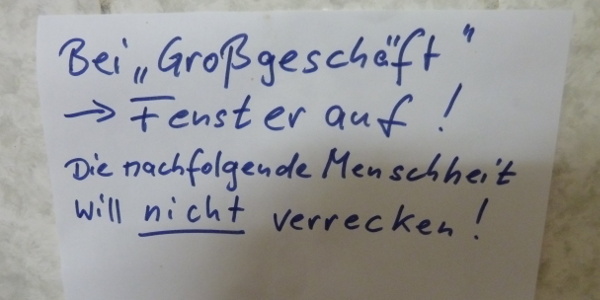 Bei „Großgeschäft"
→ Fenster auf!
Die nachfolgende Menschheit
will nicht verrecken!